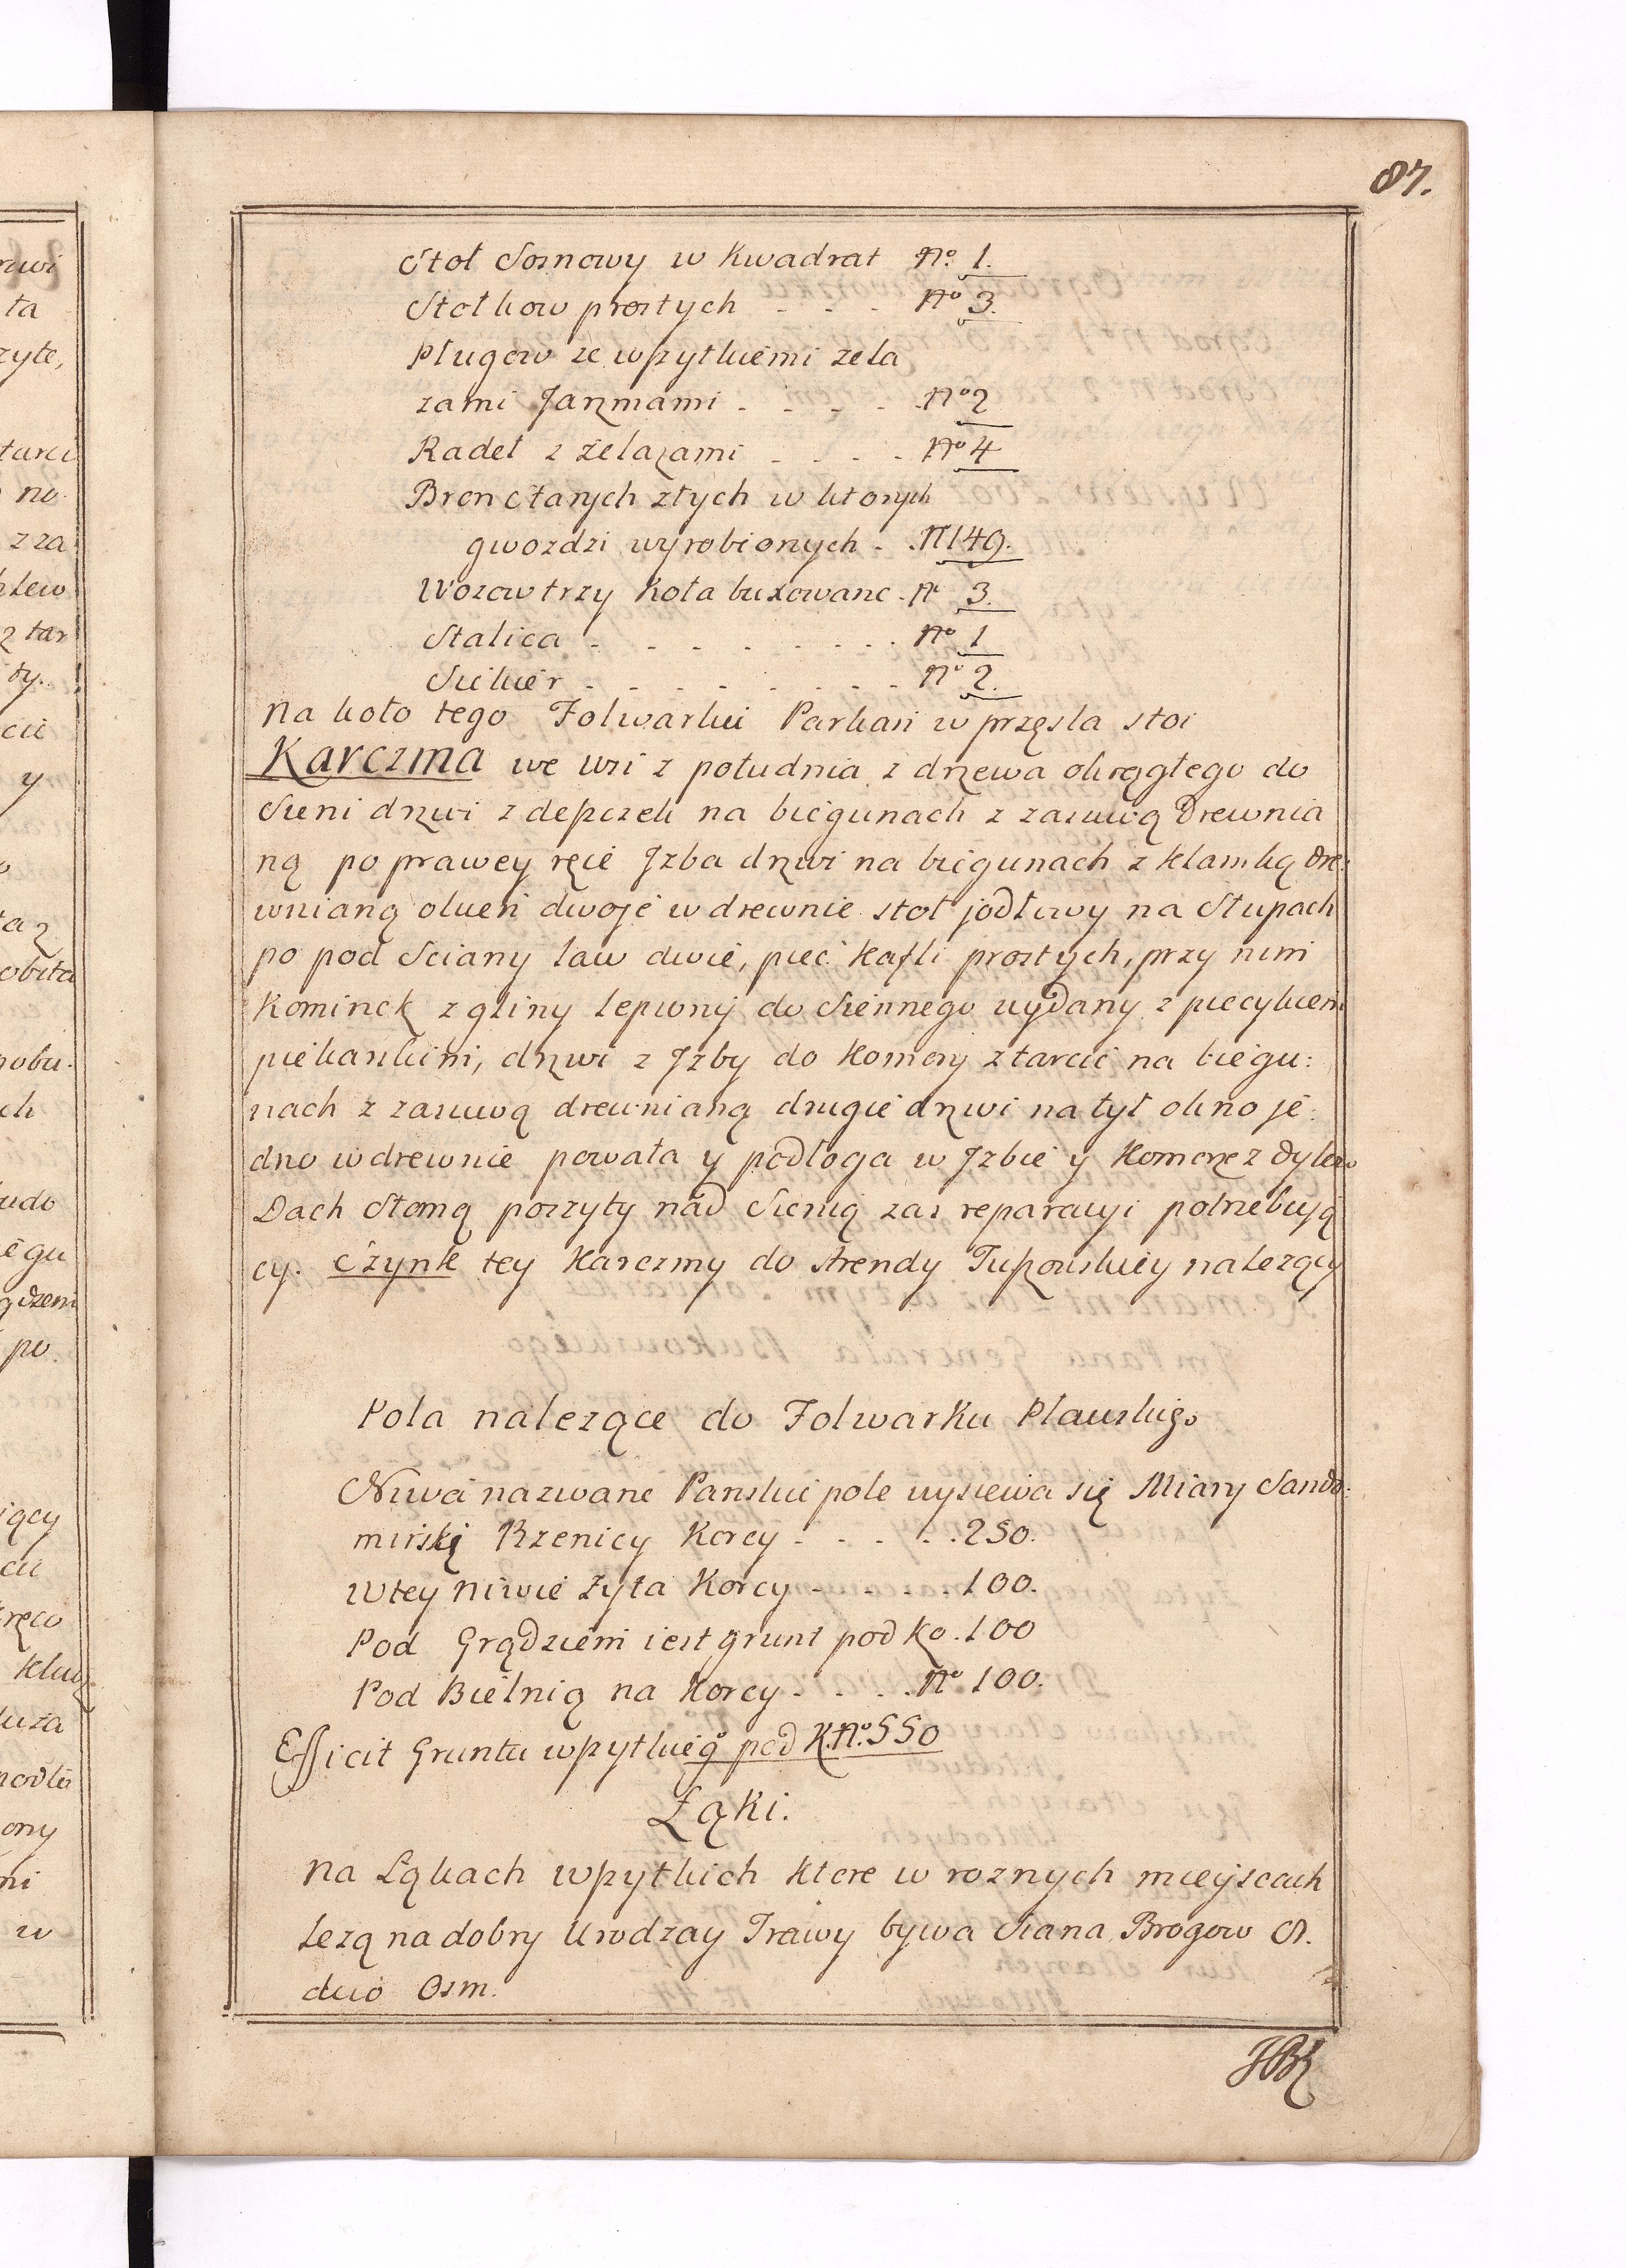 87.
Stoł Sosnowy w Kwadrat No 1.
Stołkow prostych - - - No 3.
Pługow ze wszytkiemi zela
zami Jarzmami - - - - No 2
Radeł z żelazami - - - - No 4
Bron Starych złych w ktorych
gwozdzi wyrobionych - - N 149.
Wozow trzy Koła buxowane - N 3.
Stalica - - - - - - - No 1
Siekier - - - - - - - No 2.
Na koło tego Folwarku Parkan w przęsla stoi
Karczma we wsi z południa z drzewa okrągłego do
Sieni drzwi z depczek na biegunach z zasuwą Drewnia
ną po prawey ręce Jzba drzwi na biegunach z klamką dre:
wnianą okien dwoje w drewnie stoł jodłowy na Słupach
po pod Sciany ław dwie, piec kafli prostych, przy nim
Kominek z gliny lepiony do Siennego wydany z piecykiem
piekarskim, drzwi z Jzby do Komory z tarcic na biegu:
nach z zasuwą drewnianą drugie drzwi na tył okno je:
dno w drewnie powała y podłoga w Jzbie y Komorze z dylow
Dach Słomą poszyty nad Sienią zas reparacyi potrzebują
cy. Czynsz tey Karczmy do Arendy Tuszowskiey nalezący
Pola nalezące do Folwarku Pławskiego
Niwa nazwane Panskie pole wysiewa się Miary Sando:
mirskị Pszenicy Korcy - - - - 250.
W tey Niwie Żyta Korcy - - - - 100.
Pod Grądziem iest grunt pod Ko. 100
Pod Bielnią na Korcy - - - - No 100.
Efficit Gruntu wszytkiego pod K. No. 550
Łąki.
Na Łąkach wszytkich ktore w roznych mieyscach
lezą na dobry Urodzay Trawy bywa Siana Brogow N.
duo Osm.